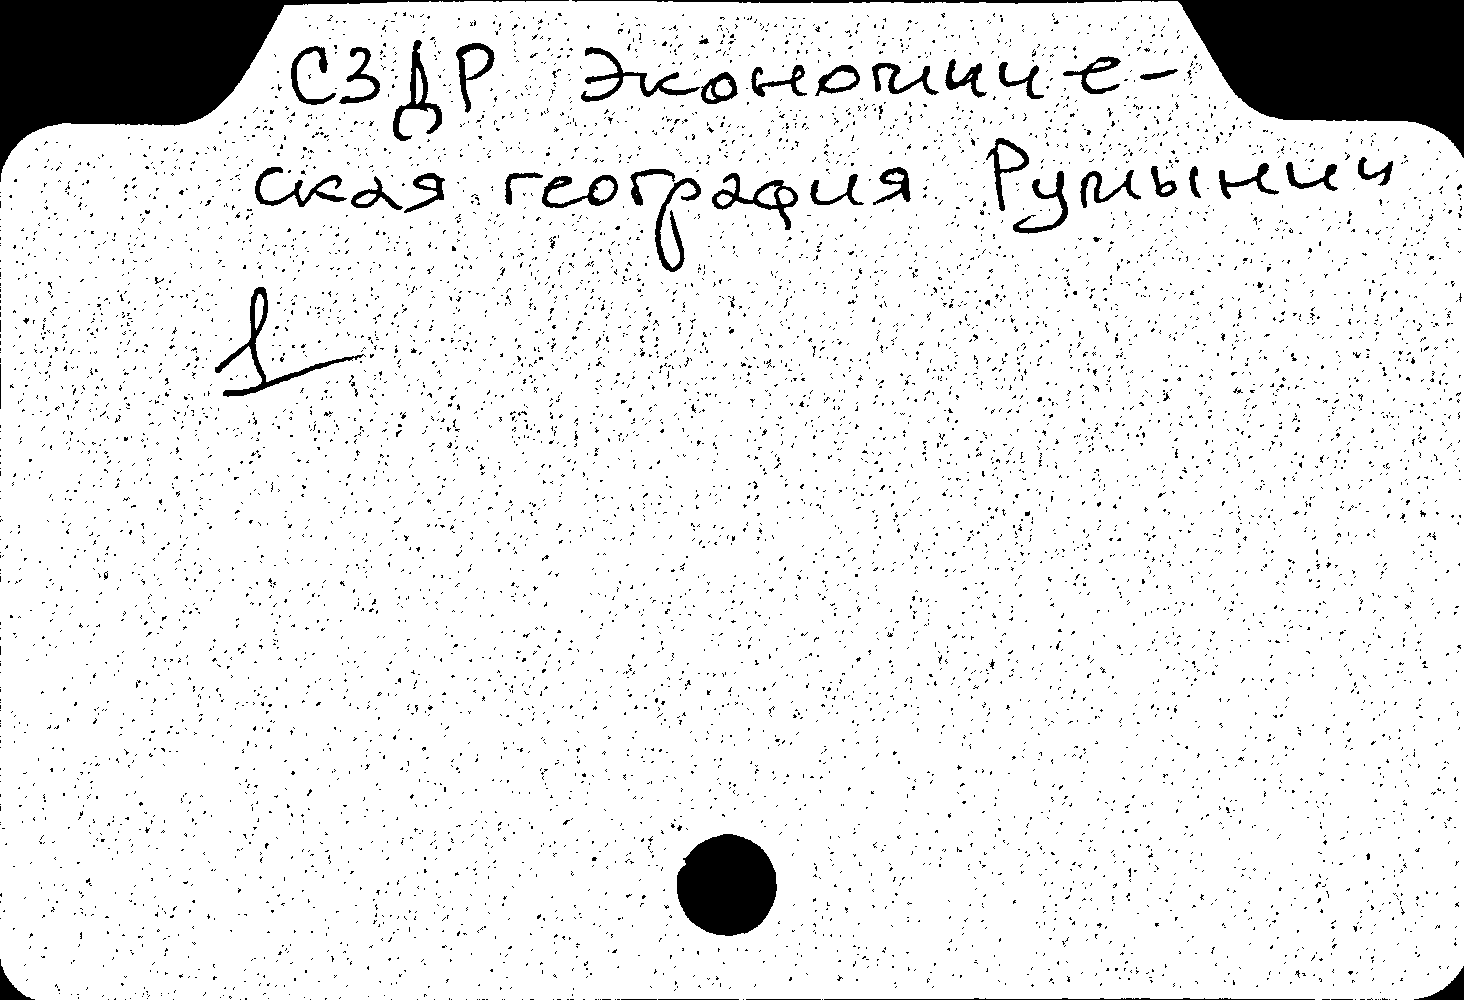 СЗДР Экономиче-
ская география Румынии
1